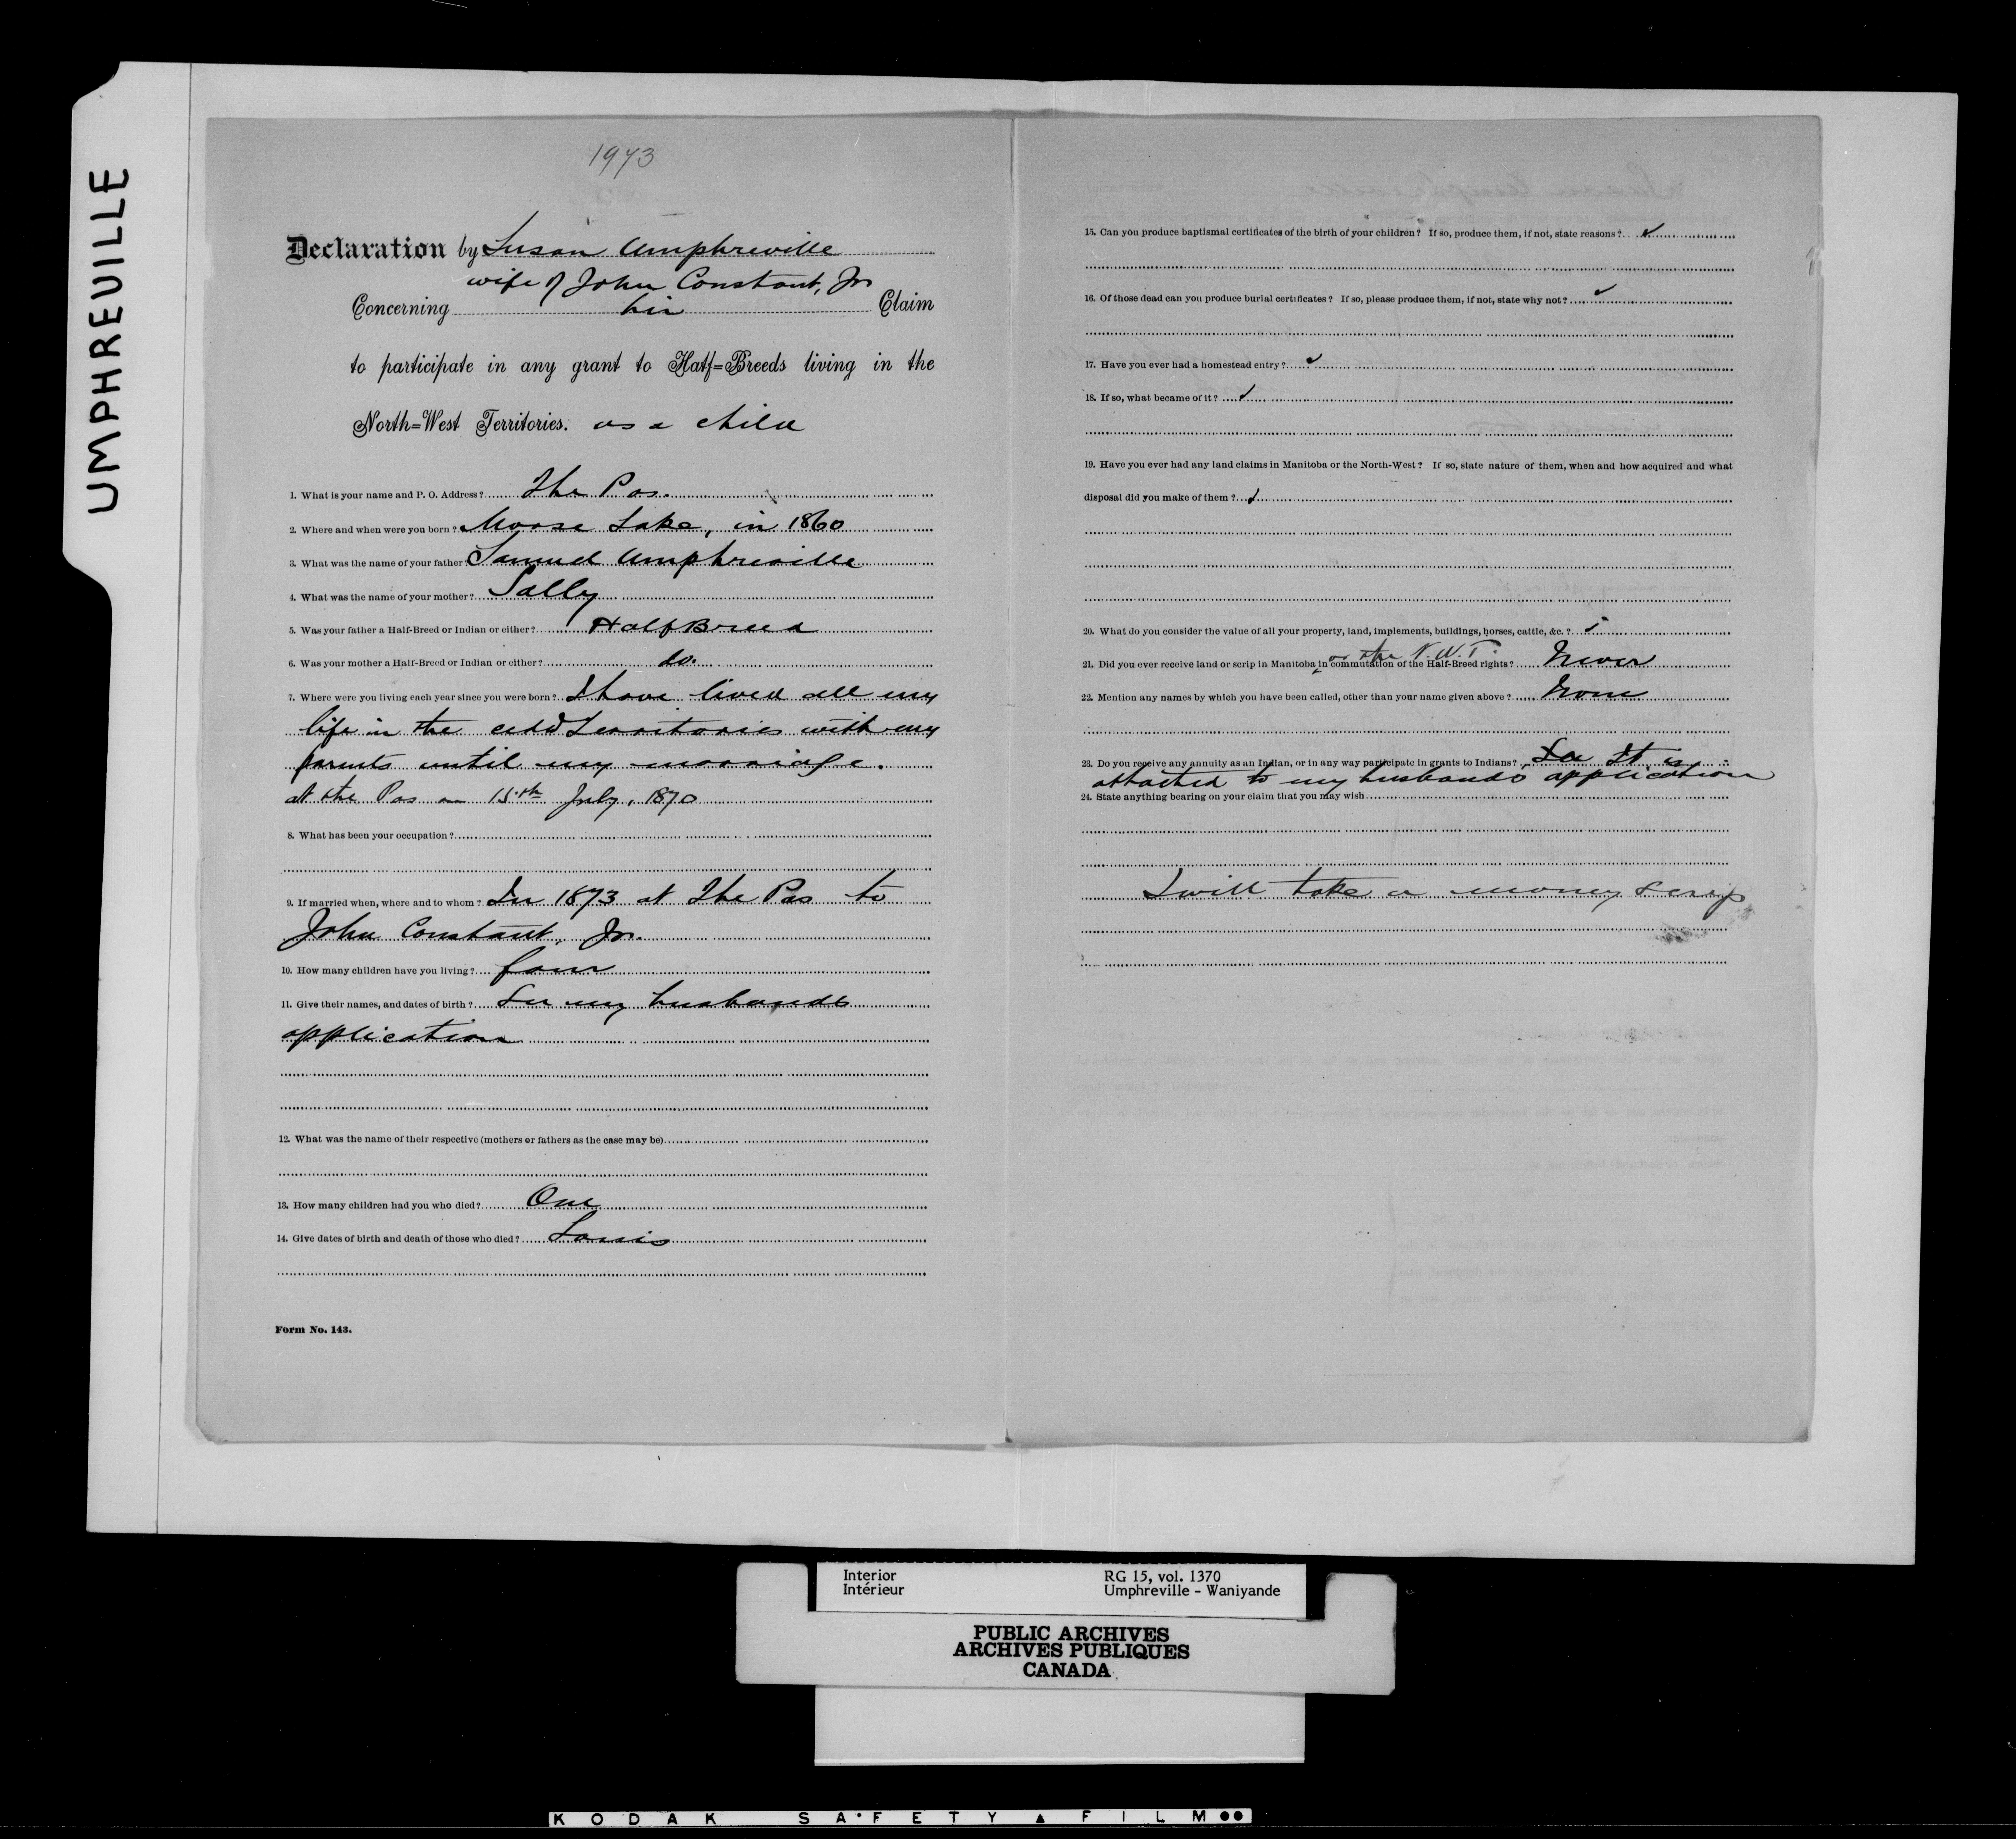 UMPHREVILLE
1973
Declaration by Susan Umphreville
wife of John Constant, Jr
Concerning her Claim
to participate in any grant to Half=Breeds living in the
North=West Territories. as a child
1. What is your name and P. O. Address? The Pas.
2. Where and when were you born? Moose Lake, in 1860
3. What was the name of your father Samuel Umphreville
4. What was the name of your mother? Sally
5. Was your father a Half-Breed or Indian or either? Half Breed
6. Was your mother a Half-Breed or Indian or either? do.
7. Where were you living each year since you were born? I have lived all my
life in the Territories with my
parents until my marriage.
at the Pas on 15th July, 1870
8. What has been your occupation?
9. If married when, where and to whom? In 1873 at The Pas to
John Constant, Jr.
10. How many children have you living? four
11. Give their names, and dates of birth? See my husbands
application
12. What was the name of their respective (mothers or fathers as the case may be)
13. How many children had you who died? One
14. Give dates of birth and death of those who died? Louis
Form No. 143.
15. Can you produce baptismal certificates of the birth of your children? If so, produce them, if not, state reasons? ✓
16. Of those dead can you produce burial certificates? If so, please produce them, if not, state why not? ✓
17. Have you ever had a homestead entry? ✓
18. If so, what became of it? ✓
19. Have you ever had any land claims in Manitoba or the North-West? If so, state nature of them, when and how acquired and what
disposal did you make of them? ✓
20. What do you consider the value of all your property, land, implements, buildings, horses, cattle, &c.? ✓
or the N.W.T.
21. Did you ever receive land or scrip in Manitoba in commutation of the Half-Breed rights? Never
22. Mention any names by which you have been called, other than your name given above? None
23. Do you receive any annuity as an Indian, or in any way participate in grants to Indians? It is
attached to my husbands application
24. State anything bearing on your claim that you may wish
I will take a money scrip
Interior RG 15, vol. 1370
Intérieur Umphreville - Waniyande
PUBLIC ARCHIVES
ARCHIVES PUBLIQUES
CANADA
KODAK SA•FETY ▲ FILM ●●